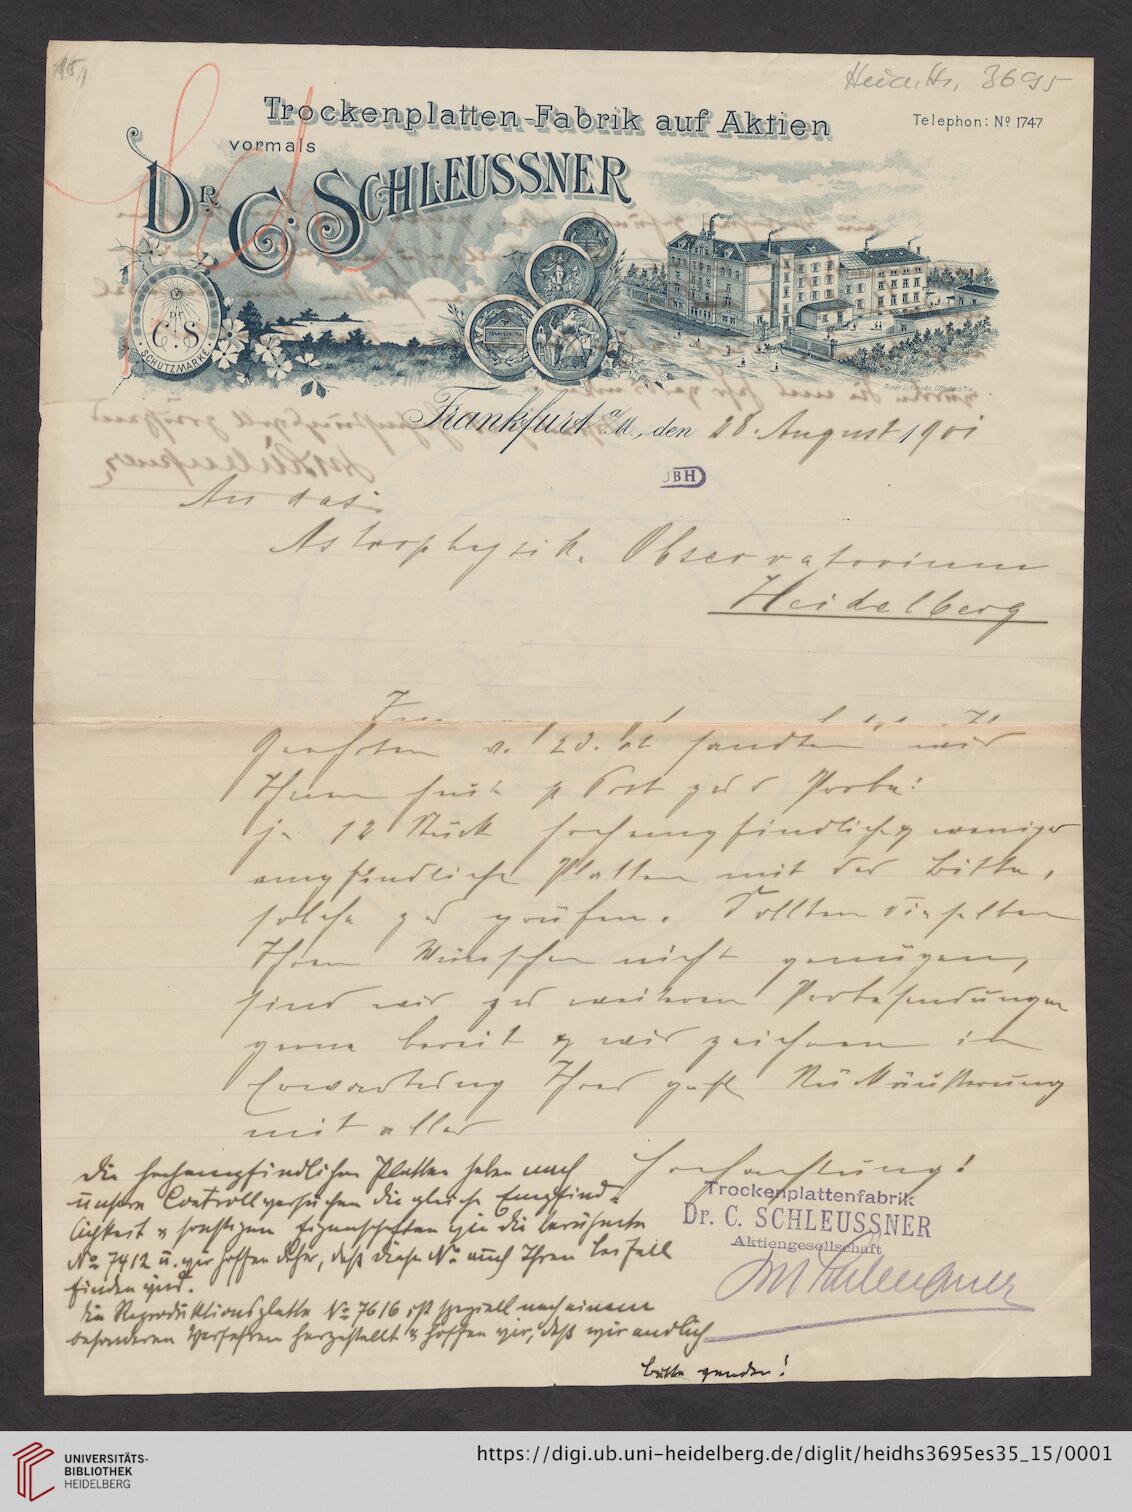 15,
Heid. Hs. 3695
Trockenplatten-Fabrik auf Aktien
Telephon: No 1747
vormals
DR. C. SCHLEUSSNER
Dr.
C. S.
SCHUTZMARKE
Frankfurt a/M., den 28. August 1901
UBH
An das
Astrophysik. Observatorium
Heidelberg
Geehrten v. 23. ct sandten wir
Ihnen heute p Post zur Probe:
je 12 Stück hochempfindliche & weniger
empfindliche Platten mit der Bitte,
solche zu prüfen. Sollten dieselben
Ihren Wünschen nicht genügen,
sind wir zu weiteren Probesendungen
gerne bereit & wir zeichnen in
Erwartung Ihrer gefl. Rückäußerung
mit aller
Hochachtung!
Trockenplattenfabrik
Dr. C. SCHLEUSSNER
Aktiengesellschaft
Die hochempfindlichen Platten haben nach
unseren Controllversuchen die gleiche Empfind-
lichkeit & sonstigen Eigenschaften wie die berühmte
No 7412 u. wir hoffen daher, daß diese No auch Ihren Beifall
finden wird.
Die Reproduktionsplatte No 7616 ist speziell nach einem
besonderen Verfahren hergestellt & hoffen wir, daß wir endlich
bitte wenden!
UNIVERSITÄTS-
BIBLIOTHEK
HEIDELBERG
https://digi.ub.uni-heidelberg.de/diglit/heidhs3695es35_15/0001